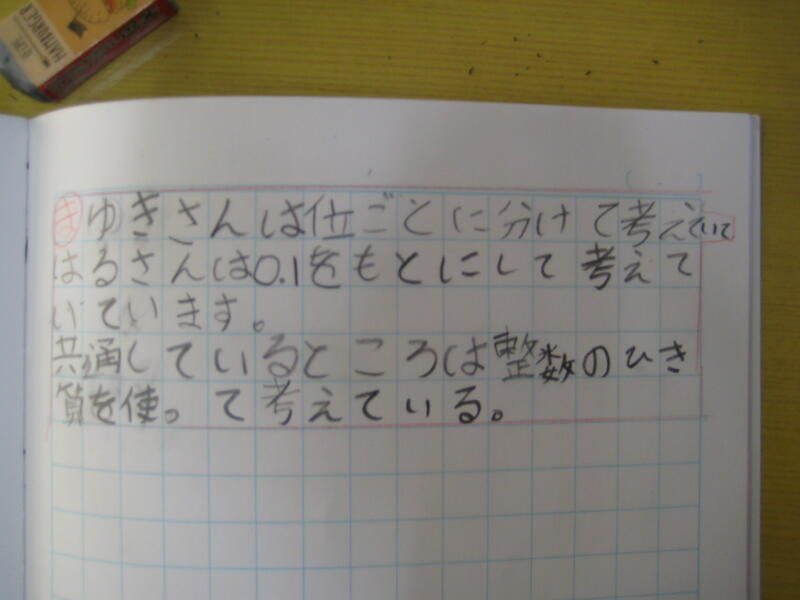 HAMBURGER
まゆきさんは位ごとに分けて考えていて
はるさんは0.1をもとにして考えて
いています。
共通しているところは整数のひき
算を使って考えている。